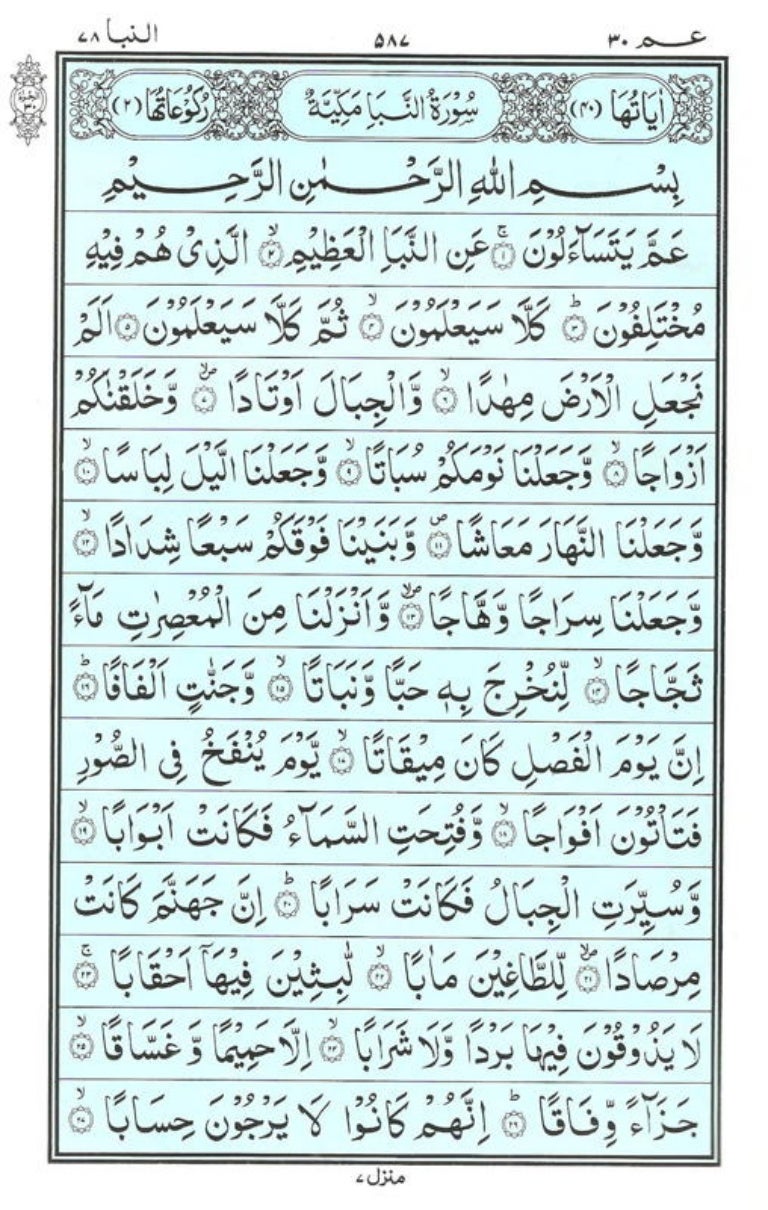 عـــم ٣٠ ٥٨٧ النبا ٧٨
اٰیَاتُهَا (٤٠) سُوْرَةُ النَّبَاِ مَكِّیَّةٌ رُكُوْعَاتُهَا (٢)
الجزء ٣٠
بِسْمِ اللّٰهِ الرَّحْمٰنِ الرَّحِیْمِ
عَمَّ یَتَسَآءَلُوْنَ ۚ‏﴿۱﴾ عَنِ النَّبَاِ الْعَظِیْمِ ۙ‏﴿۲﴾ الَّذِیْ هُمْ فِیْهِ
مُخْتَلِفُوْنَ ؕ‏﴿۳﴾ كَلَّا سَیَعْلَمُوْنَ ۙ‏﴿۴﴾ ثُمَّ كَلَّا سَیَعْلَمُوْنَ ﴿۵﴾ اَلَمْ
نَجْعَلِ الْاَرْضَ مِهٰدًا ۙ‏﴿۶﴾ وَّالْجِبَالَ اَوْتَادًا ۪ۙ‏﴿۷﴾ وَّخَلَقْنٰكُمْ
اَزْوَاجًا ۙ‏﴿۸﴾ وَّجَعَلْنَا نَوْمَكُمْ سُبَاتًا ۙ‏﴿۹﴾ وَّجَعَلْنَا الَّیْلَ لِبَاسًا ۙ‏﴿۱۰﴾
وَّجَعَلْنَا النَّهَارَ مَعَاشًا ۪‏﴿۱۱﴾ وَّبَنَیْنَا فَوْقَكُمْ سَبْعًا شِدَادًا ۙ‏﴿۱۲﴾
وَّجَعَلْنَا سِرَاجًا وَّهَّاجًا ۪ۙ‏﴿۱۳﴾ وَّاَنْزَلْنَا مِنَ الْمُعْصِرٰتِ مَآءً
ثَجَّاجًا ۙ‏﴿۱۴﴾ لِّنُخْرِجَ بِهٖ حَبًّا وَّنَبَاتًا ۙ‏﴿۱۵﴾ وَّجَنّٰتٍ اَلْفَافًا ؕ‏﴿۱۶﴾
اِنَّ یَوْمَ الْفَصْلِ كَانَ مِیْقَاتًا ۙ‏﴿۱۷﴾ یَّوْمَ یُنْفَخُ فِی الصُّوْرِ
فَتَاْتُوْنَ اَفْوَاجًا ۙ‏﴿۱۸﴾ وَّفُتِحَتِ السَّمَآءُ فَكَانَتْ اَبْوَابًا ۙ‏﴿۱۹﴾
وَّسُیِّرَتِ الْجِبَالُ فَكَانَتْ سَرَابًا ؕ‏﴿۲۰﴾ اِنَّ جَهَنَّمَ كَانَتْ
مِرْصَادًا ۪ۙ‏﴿۲۱﴾ لِّلطَّاغِیْنَ مَاٰبًا ۙ‏﴿۲۲﴾ لّٰبِثِیْنَ فِیْهَاۤ اَحْقَابًا ۚ‏﴿۲۳﴾
لَا یَذُوْقُوْنَ فِیْهَا بَرْدًا وَّلَا شَرَابًا ۙ‏﴿۲۴﴾ اِلَّا حَمِیْمًا وَّغَسَّاقًا ۙ‏﴿۲۵﴾
جَزَآءً وِّفَاقًا ؕ‏﴿۲۶﴾ اِنَّهُمْ كَانُوْا لَا یَرْجُوْنَ حِسَابًا ۙ‏﴿۲۷﴾
منزل ٧